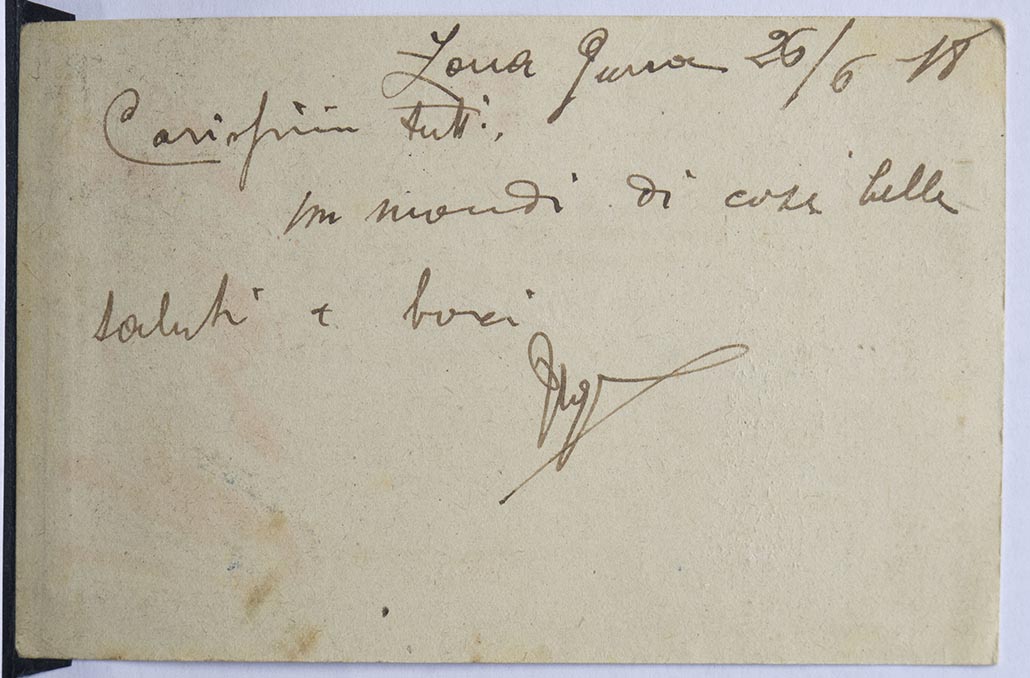 Zona Guerra 26/6 18
Carissimi tutti,
un mondi di cose belle
saluti e baci